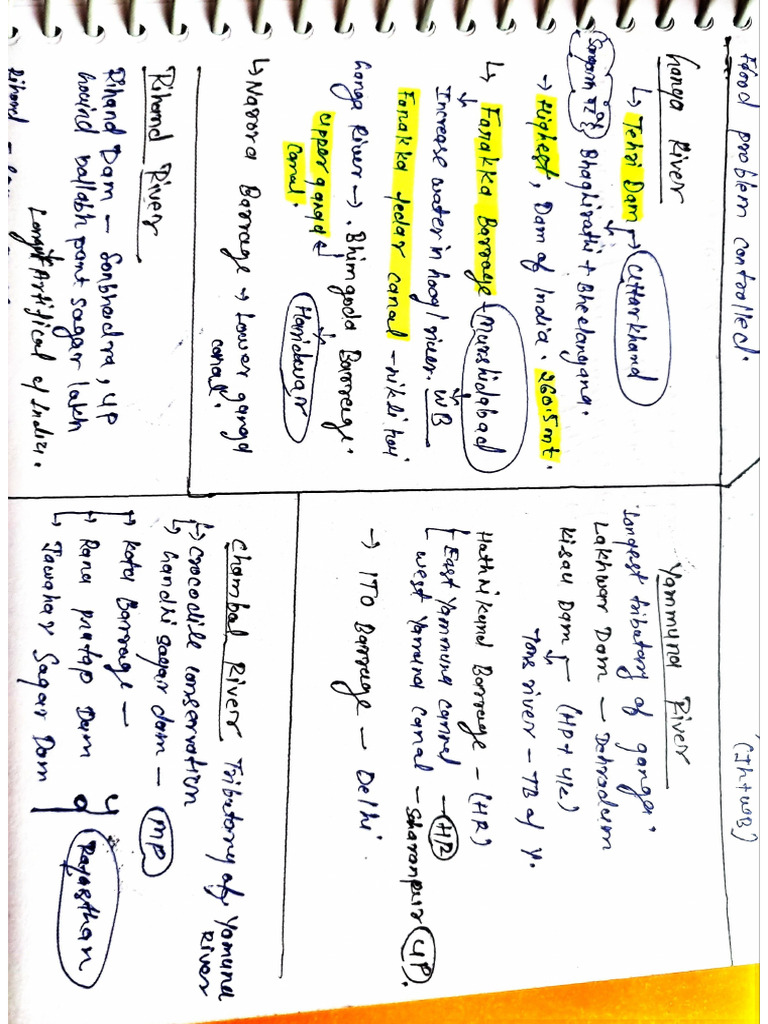 Flood problem controlled.
(Jh+WB)
Ganga River
↳ Tehri Dam → Uttarkhand
Bhaghirathi + Bheelangana.
→ Highest, Dam of India. 260.5mt.
↳ Farakka Barrage - Murshidabad
Increase water in hoogl river. WB
Farakka fedar canal - nikli hai
Ganga River → . Bhimgoda Barrage.
upper ganga canal.
Haridwar
↳ Narora Barrage → Lower ganga canal.
Rihand River
Rihand Dam - Sonbhadra, UP
Govind ballabh pant sagar lakh
Longest Artifical of India.
Rihand
Yammuna River
'Longest tributary of ganga.
Lakhwar Dam - Dehradum
Kisau Dam → (HP+UK)
Tons river - TB of Y.
Hathnikund Barrage - (HR)
East Yammuna cannal - HR
west Yamuna canal - Saharanpur UP.
→ ITO Barrage - Delhi.
Chambal River Tributary of Yamuna River
↳ Crocodile conservation
↳ Gandhi sagar dam - MP
↳ Kota Barrage -
↳ Rana pratap Dam
↳ Jawahar Sagar Dam
Rajasthan